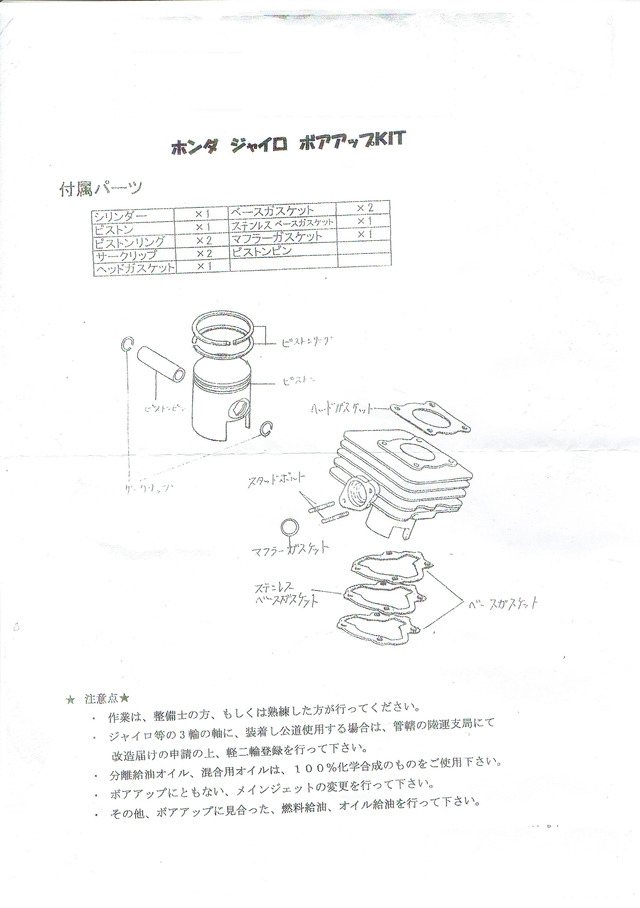 ホンダ ジャイロ ボアアップKIT
付属パーツ
シリンダー ×1 ベースガスケット ×2
ピストン ×1 ステンレス ベースガスケット ×1
ピストンリング ×2 マフラーガスケット ×1
サークリップ ×2 ピストンピン
ヘッドガスケット ×1
ピストンリング
ピストン
ピストンピン
ヘッドガスケット
サークリップ
スタッドボルト
マフラーガスケット
ステンレス
ベースガスケット
ベースガスケット
★ 注意点★
・ 作業は、整備士の方、もしくは熟練した方が行ってください。
・ ジャイロ等の3輪の軸に、装着し公道使用する場合は、管轄の陸運支局にて
改造届けの申請の上、軽二輪登録を行って下さい。
・ 分離給油オイル、混合用オイルは、100%化学合成のものをご使用下さい。
・ ボアアップにともない、メインジェットの変更を行って下さい。
・ その他、ボアアップに見合った、燃料給油、オイル給油を行って下さい。